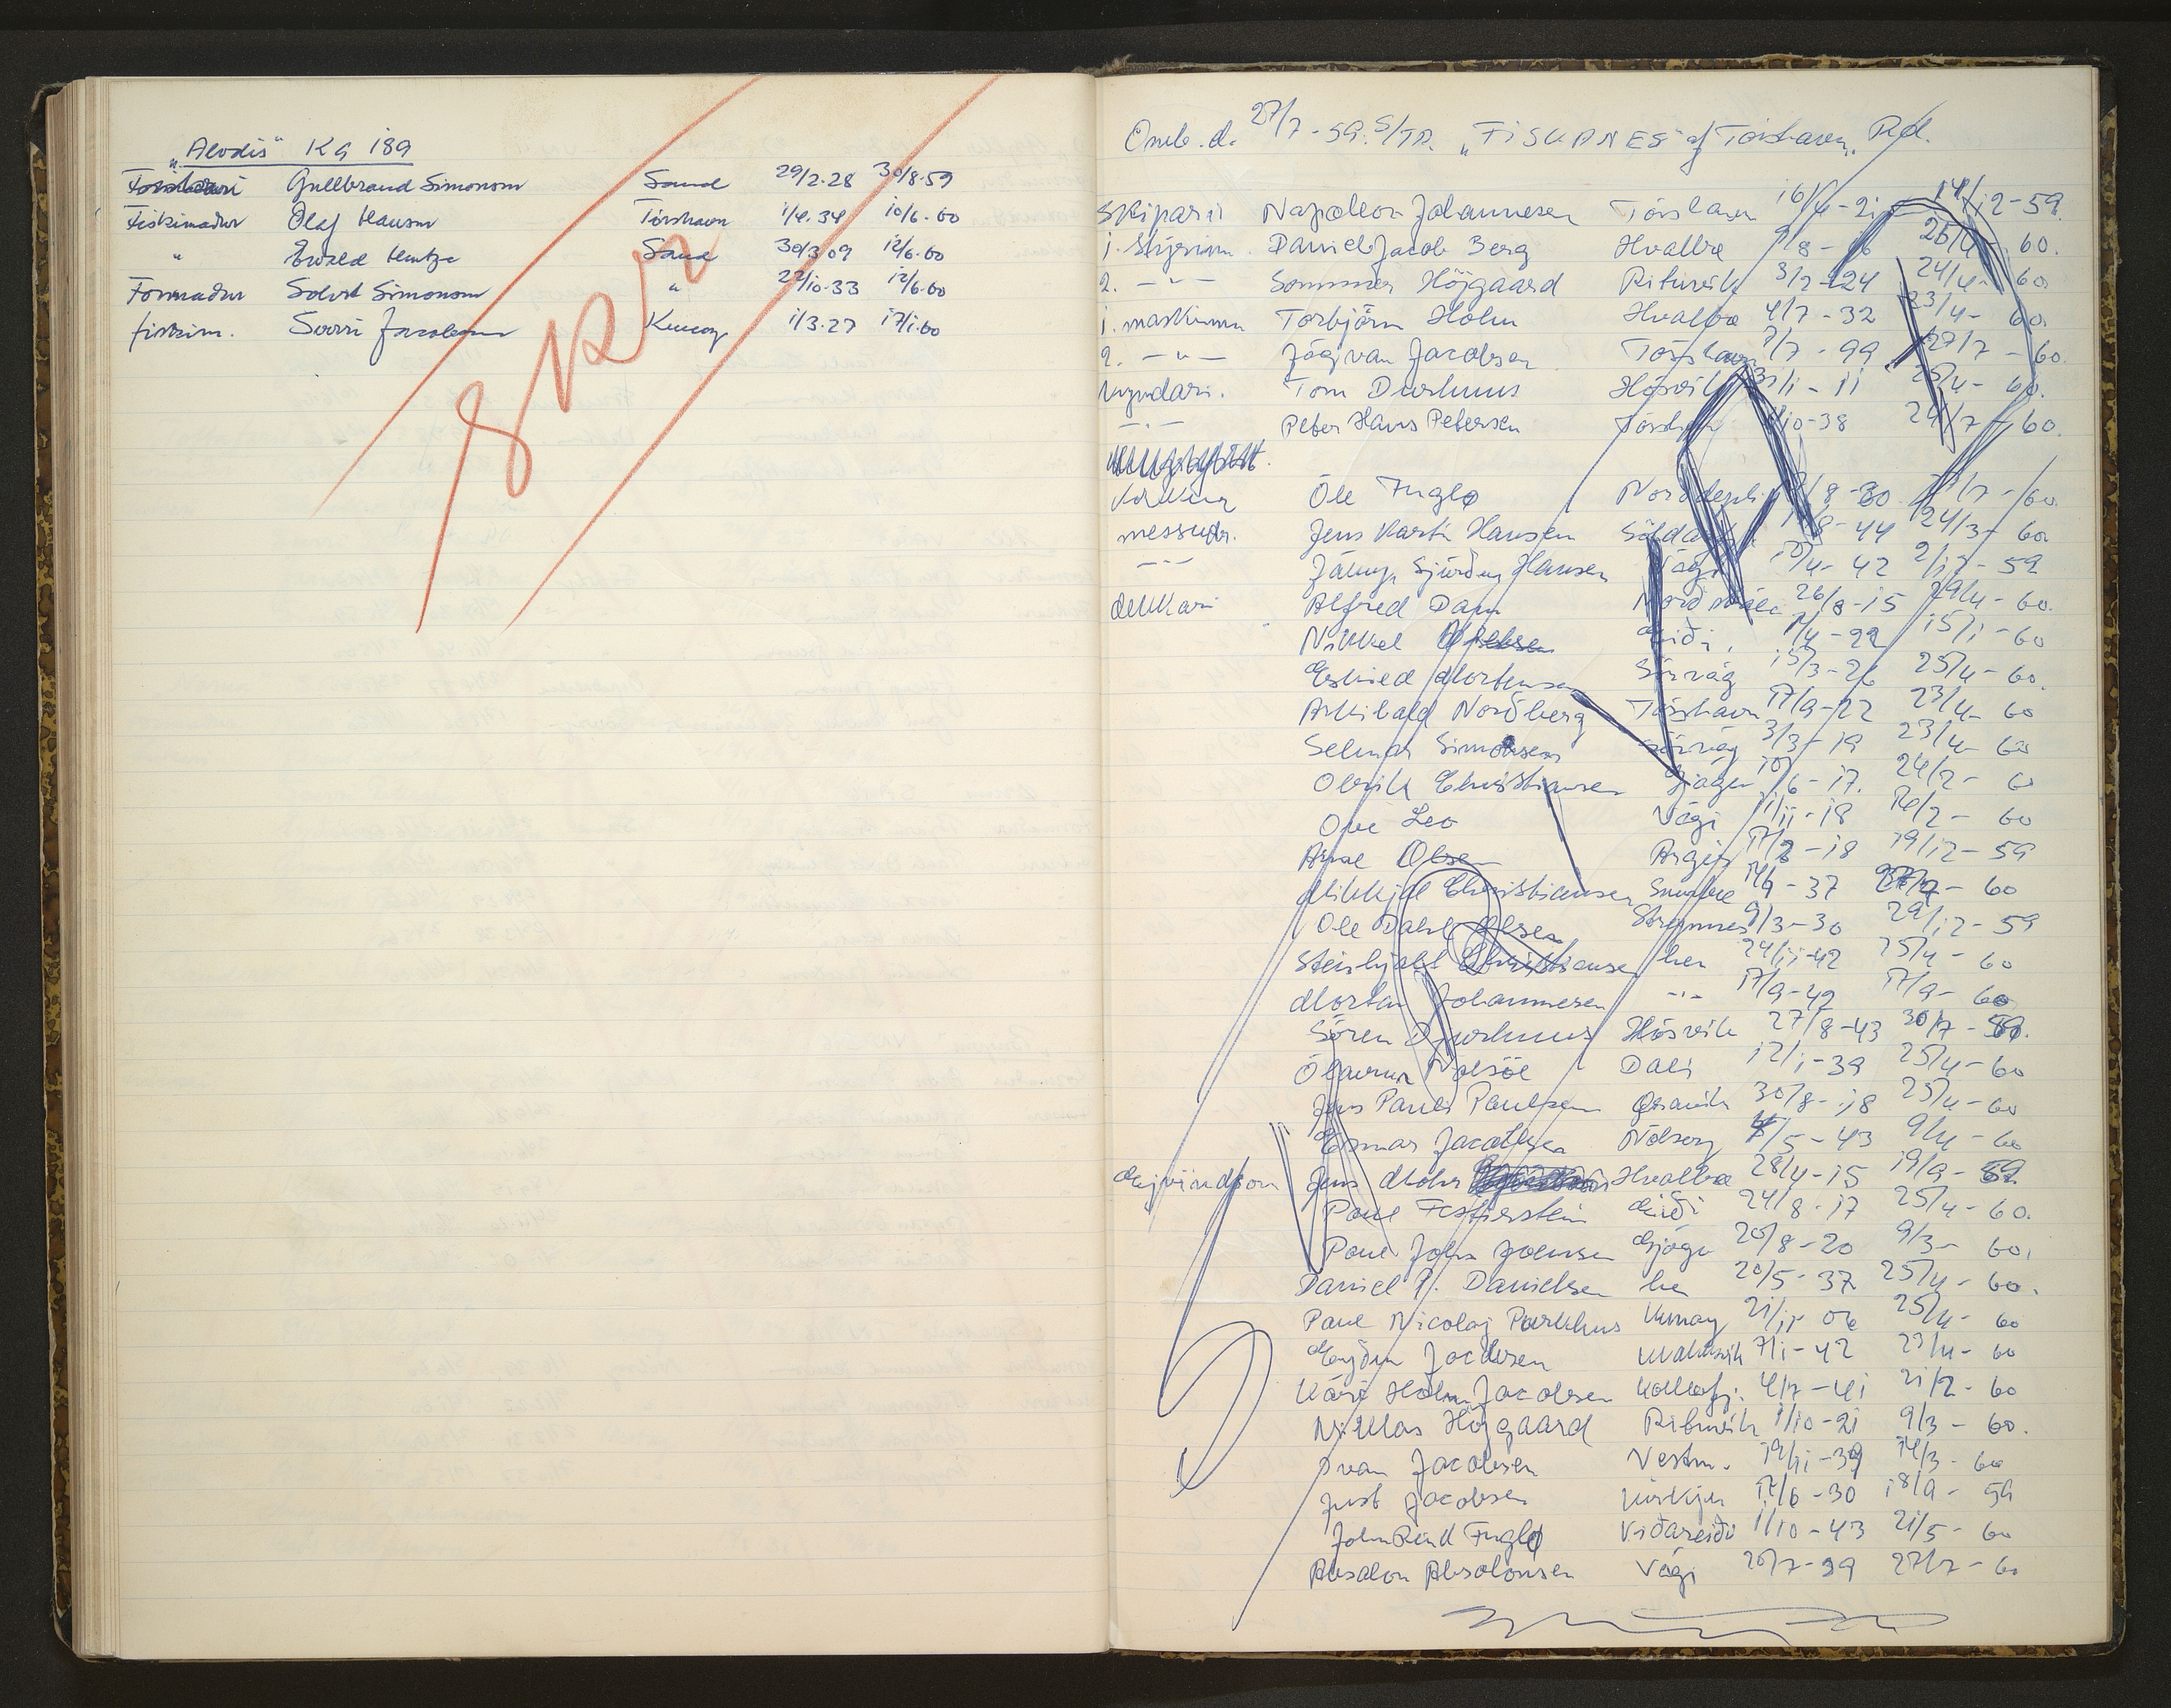 "Alvdis" KG 189
Gullbrand Simonsen Sand 29/2.28 30/8.59
Fiskimaður Olaf Hansen Tórshavn 1/4.34 10/6.60
" Ewald Hentze Sand 30/3 09 12/6.60
Formaður Solvit Simonsen " 22/10.33 12/6.60
fiskim. Sverri Jacobsen Kunoy 1/3.27 17/1.60
Omb. d. 27/7 - 59. S/TR. "FISKANES" af Tórshavn. Rd.
Skipari Napoleon Johannesen Tórshavn 16/4-21 14/12-59.
1. Stýrim. Daniel Jacob Berg Hvalba 25/4-60.
2. -"- Sommer Højgaard Rituvík 3/2-24 24/4-60
1. maskinm Torbjörn Holm Hvalba 4/7-32 23/4-60.
2. -"- Jógvan Jacobsen Tórshavn 7/7-99 27/7-60.
kyndari. Tom Djurhuus Hósvík 31/1-11 25/4-60.
-"- Peter Hans Petersen Tórshavn 10-38 24/7-60.
kokkur Óle Fuglø Norddepli 8-30 /7-60
messudr. Jens Martin Hansen 8-44 24/3-60
-"- Sjúrður Hansen Vági 10/4-42 59
dekkari Alfred Dam Norðskála 26/8-15 29/4-60.
Nikkel Eiði, 1/4-22 15/1-60
Mortensen Sörvág 15/3-26 25/4-60.
Arkibald Norðberg Tórshavn 17/9-22 23/4-60
Selmar Simonsen Sörvág 3/3-19 23/4-60
Olrik Christiansen Gjógv 10/6-17. 24/2-60
Ove Leo Vági 1/11-18 16/2-60
Olsen Argir 17/2-18 19/12-59
Mikkjal Christiansen Sumba 14/9-37 60
Ole Dahl Olsen Strømnes 9/3-30 29/12-59
Steinbjølt Christiansen her 24/11-42 25/4-60
Mortan Johannesen -"- 17/9-42 17/9-60
Sören Djurhuus Hósvík 27/8-43 30/7-59.
Ólavur Nolsøe Dali 12/1-39 25/4-60
Jens Pauli Paulsen Øravík 30/8-18 25/4-60
Jacobsen Nólsoy /5-43 9/4-60
Jens Mohr Hvalba 28/4-15 19/9-59.
Poul Fagerstein Eiði 24/8-17 25/4-60.
Poul John Joensen Gjógv 20/8-20 9/3-60.
Daniel P. Danielsen her 20/5-37 25/4-60.
Poul Nicolaj Parkhus Kunoy 21/11-06 25/4-60
Jacobsen 7/1-42 23/4-60
Kári Holm Jacobsen Kollafj. 4/7-41 21/2-60
Niklas Højgaard Rituvík 1/10-21 9/3-60.
Ivan Jacobsen Vestm. 19/11-39 14/3-60
Just Jacobsen Kirkju 17/6-30 18/9-59
John Rend Fuglø Viðareiði 1/10-43 21/5-60
Absalon Absalonsen Vági 20/7-39 27/7-60